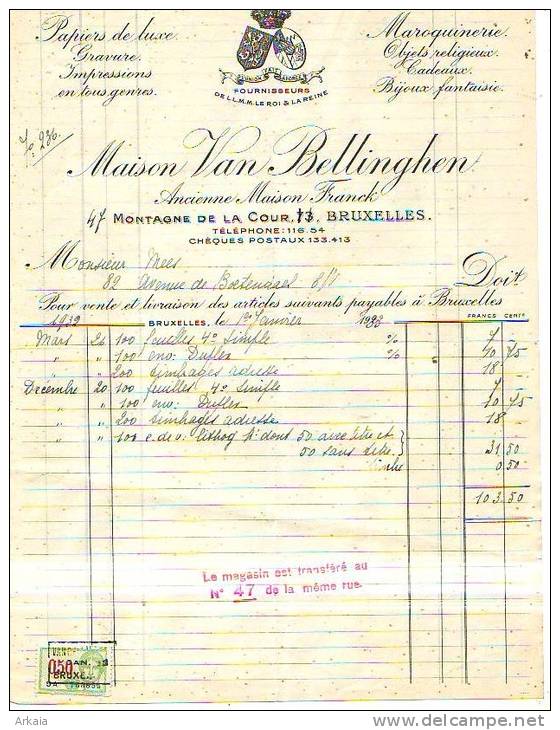 Papiers de luxe.
Gravure.
Impressions
en tous genres.
Maroquinerie.
Objets religieux.
Cadeaux.
Bijoux fantaisie.
FOURNISSEURS
DE LL.M.M. LE ROI & LA REINE
Fo 236.
Maison Van Bellinghen
Ancienne Maison Franck
47 MONTAGNE DE LA COUR, 73, BRUXELLES.
TÉLÉPHONE: 116.54
CHÈQUES POSTAUX 133.413
Monsieur Mees
82 Avenue de Doit.
Pour vente et livraison des articles suivants payables à Bruxelles
FRANCS CENTs
1932 BRUXELLES, le 1er Janvier 1933
Mars 26 100 feuilles 4° Simple % 7
" " 100 env: Duplex % 10 75
" " 200 timbrages adresse 18
Décembre 20 100 feuilles 4° Simple 7
" " 100 env: Duplex 10 75
" " 200 timbrages adresse 18
" " 100 c. de v. lithog Mr dont 50 avec titre et
50 sans titre 31 50
timbre 0 50
103 50
Le magasin est transféré au
N° 47 de la même rue.
050
BRUXEL
Arkaia
www.delcampe.net